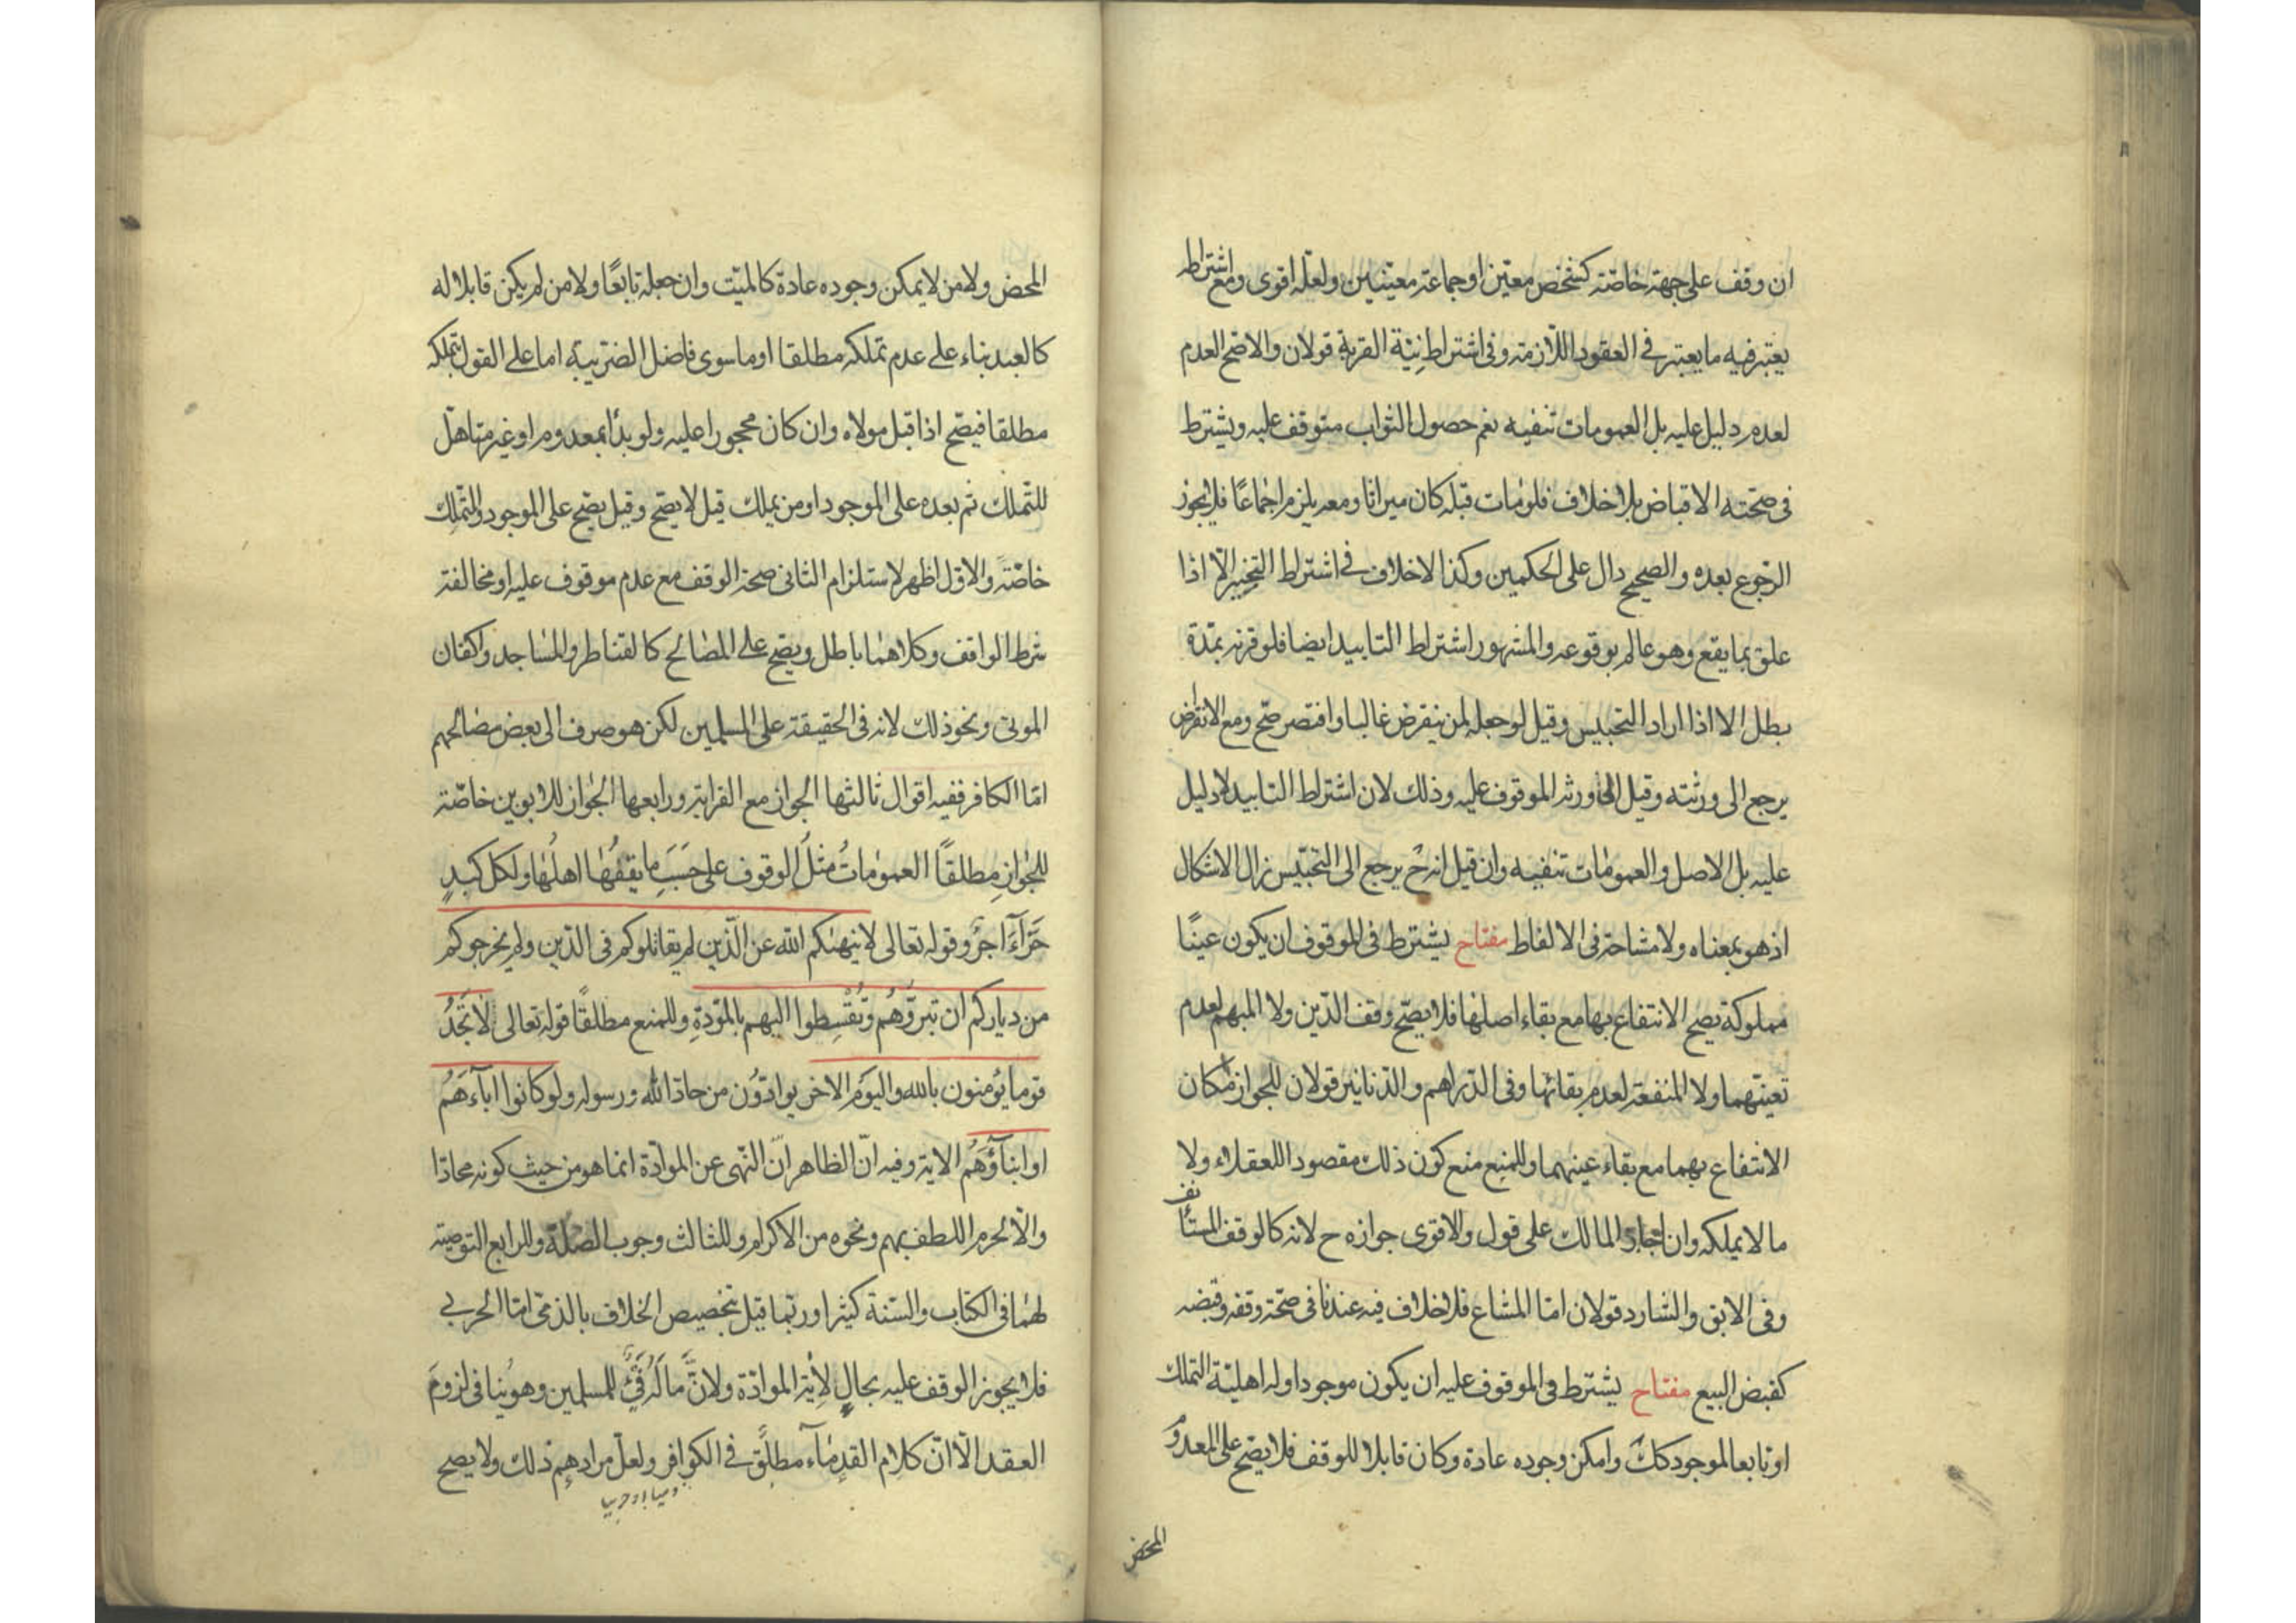 ان وقف على جهة خاصّة كشخص معيّن او جماعة معيّنين ولعلّه اقوى ومع اشتراط
يعتبر فيه ما يعتبر في العقود اللازمة وفى اشتراط نيّة القربة قولان والاصح العدم
لعدم دليل عليه بل العمومات تنفيه نعم حصول الثواب متوقف عليه ويشترط
فى صحّته الاقباض بلا خلاف فلو مات قبله كان ميراثا ومعه يلزم اجماعًا فلا يجوز
الرّجوع بعده والصحيح دال على الحكمين وكذا لا خلاف في اشتراط التنجيز الّا اذا
علق بما يقع وهو عالم بوقوعه والمشهور اشتراط التابيد ايضا فلو قرنه بمدّة
بطل الا اذا اراد التحبيس وقيل لو جعله لمن ينقرض غالبا واقتصر صحّ ومع الانقراض
يرجع الى ورثته وقيل الى ورثه الموقوف عليه وذلك لان اشتراط التابيد لا دليل
عليه بل الاصل والعمومات تنفيه وان قيل انه ح يرجع الى التحبيس زال الاشكال
اذ هو بمعناه ولا مشاحة فى الالفاظ مفتاح يشترط فى الموقوف ان يكون عينًا
مملوكة يصح الانتفاع بها مع بقاء اصلها فلا يصحّ وقف الدّين ولا المبهم لعدم
تعينهما ولا المنفعة لعدم بقائها وفى الدّراهم والدّنانير قولان للجواز امكان
الانتفاع بهما مع بقاء عينهما وللمنع منع كون ذلك مقصودا للعقلاء ولا
ما لا يملكه وان اجاز المالك على قول والاقوى جوازه ح لانه كالوقف المستانف
وفى الابق والشارد قولان امّا المشاع فلا خلاف فيه عندنا فى صحّة وقفه وقبضه
كقبض البيع مفتاح يشترط فى الموقوف عليه ان يكون موجودا وله اهليّة التملك
او تابعا لموجود كك وامكن وجوده عادة وكان قابلا للوقف فلا يصحّ على المعدوم
المحض
المحض ولا من لا يمكن وجوده عادة كالميّت وان جعله تابعًا ولا من لم يكن قابلا له
كالعبد بناء على عدم تملكه مطلقا او ما سوى فاضل الضريبة اما على القول بتملكه
مطلقا فيصحّ اذا قبل مولاه وان كان محجورا عليه ولو بدأ بمعدوم او غير متاهل
للتملك ثم بعده على الموجود او من يملك قيل لا يصحّ وقيل يصحّ على الموجود والتملك
خاصّة والاوّل اظهر لاستلزام الثانى صحة الوقف مع عدم موقوف عليه او مخالفة
شرط الواقف وكلاهما باطل ويصحّ على المصالح كالقناطر والمساجد واكفان
الموتى ونحو ذلك لانه فى الحقيقة على المسلمين لكن هو صرف الى بعض مصالحهم
امّا الكافر ففيه اقوال ثالثها الجواز مع القرابة ورابعها الجواز للابوين خاصّة
للجواز مطلقًا العمومات مثل الوقوف على حَسَبِ ما يقفُها اهلُها ولكل كبدٍ
حَرّآءَ اجرٌ وقوله تعالى لا ينهٰيكم اللّه عن الّذين لم يقاتلوكم فى الدّين ولم يخرجوكم
من دياركم ان تبرّوهُم وتُقْسِطوا اليهم بالمودّةِ وللمنع مطلقًا قوله تعالى لا تَجَدُ
قوما يؤمنون بالله واليوَم الاخر يوادّوُن من حادّ اللّه ورسوله ولو كانوا اباءَهَمُ
او ابنآؤَهُم الاية وفيه انّ الظاهر انّ النّهى عن الموادّة انما هو من حيث كونه محادّا
والّا لحرم اللطف بهم ونحوه من الاكرام وللثالث وجوب الصّلة وللرابع التوصية
لهما فى الكتاب والسّنة كثيرا وربّما قيل بتخصيص الخلاف بالذمّى امّا الحربي
فلا يجوز الوقف عليه بحالٍ لاِية الموادّة ولانَّ مالَه فَىْءٌ للمسلمين وهو يُنافى لزومَ
العقد الّا انّ كلام القدمآء مطلق في الكوافر ولعلّ مرادهم ذلك ولا يصح
ذميا او حربيا